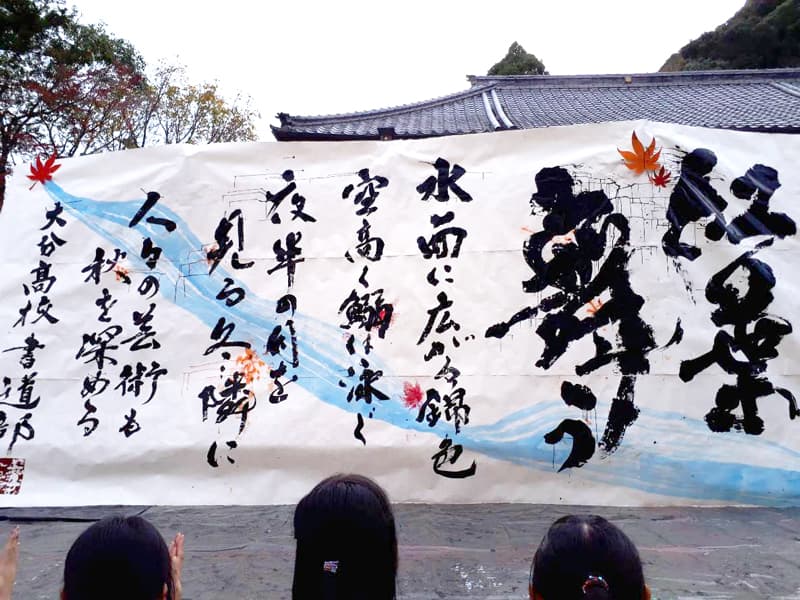 紅葉
舞う
水面に広がる錦色
空高く鰯は泳ぐ
夜半の月を
見る冬隣に
人々の芸術も
秋を深める
大分高校書道部